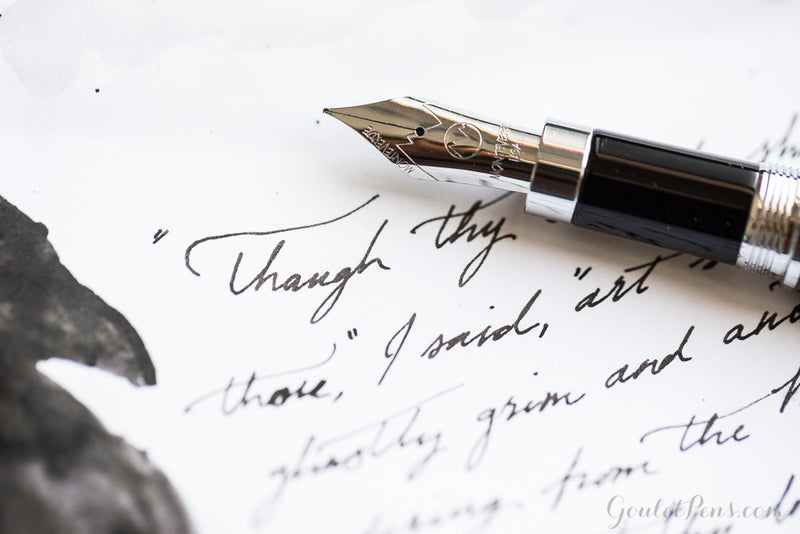 MONTEVERDE
MONTEVERDE
USA
"Though thy
thou," I said, "art
ghastly grim and and
from the
GouletPens.com